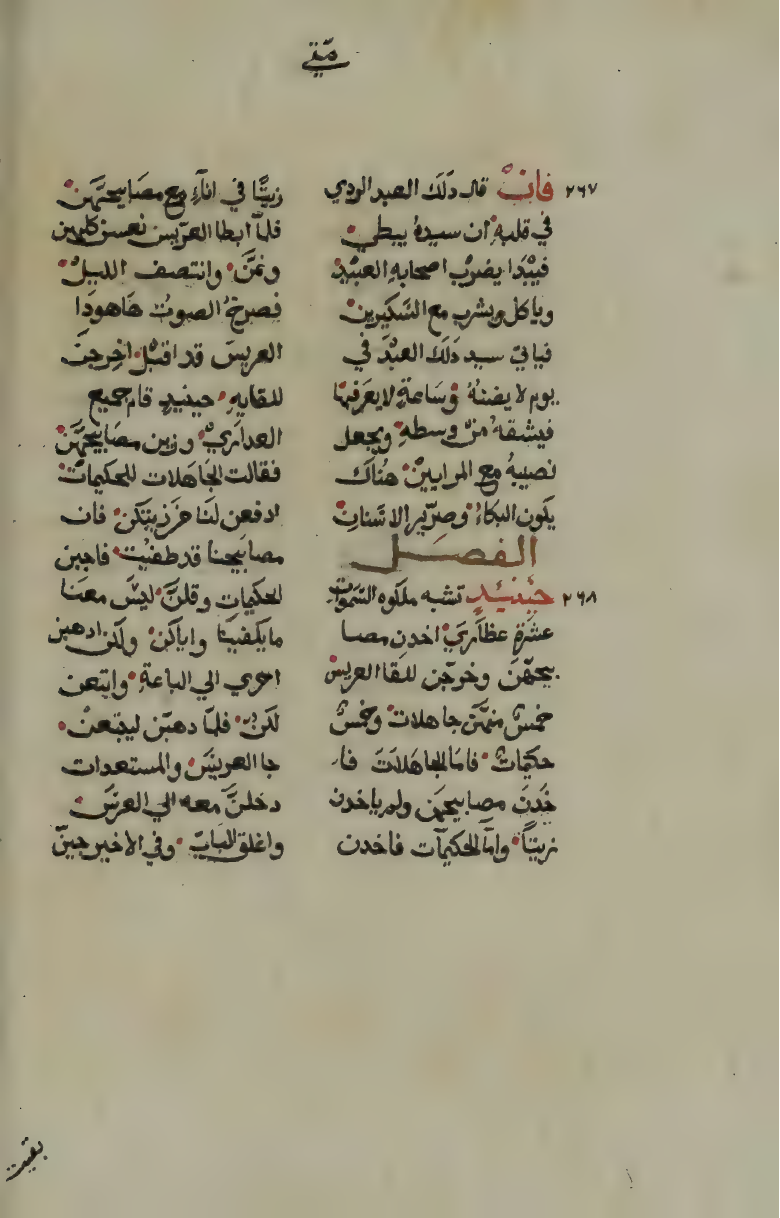 متي
٢٦٧ فانّ قال ذلك العبد الردي
في قلبه ان سيدهُ يبطي
فيبْدا يضرب اصحابه العبيد
وياكل ويشرب مع السكيرين
فياتي سيد ذلك العبد في
يوم لا يضنهُ وساعة لا يعرفها
فيشقهُ من وسطه ويجعل
نصيبهُ مع المرايين هناك
يكون البكاء وصرير الاسنان
الفصل
٢٦٨ حينيدٍ تشبه ملكوه السموات
عشرة عظاري اخدن مصا
بيحهن وخرجن للقا العريس
خمسٌ منهن جاهلات وخمسٌ
حكيماتٌ فاما الجاهلات فا
خدن مصابيحهن ولم ياخدن
زيتاً واما الحكيمات فاخدن
زيتًا في اناءٍ مع مصابيحهن
فلما ابطا العريس نعسن كلهن
ونمن وانتصف الليل
فصرخ الصوت هاهودا
العريس قد اقبل اخرجن
للقايه حينيدٍ قام جميع
العداري وزين مصابيحهن
فقالت الجاهلات للحكيمات
ادفعن لنا من زيتكن فان
مصابيحنا قد طفيت فاجبن
الحكيمات وقلن ليس معنا
ما يكفينا واياكن ولكن ادهبن
احري الي الباعة وابتعن
لكن فلما دهبن ليبتعن
جا العريس والمستعدات
دخلن معه الي العرس
واغلق الباب وفي الاخير جين
بقيت